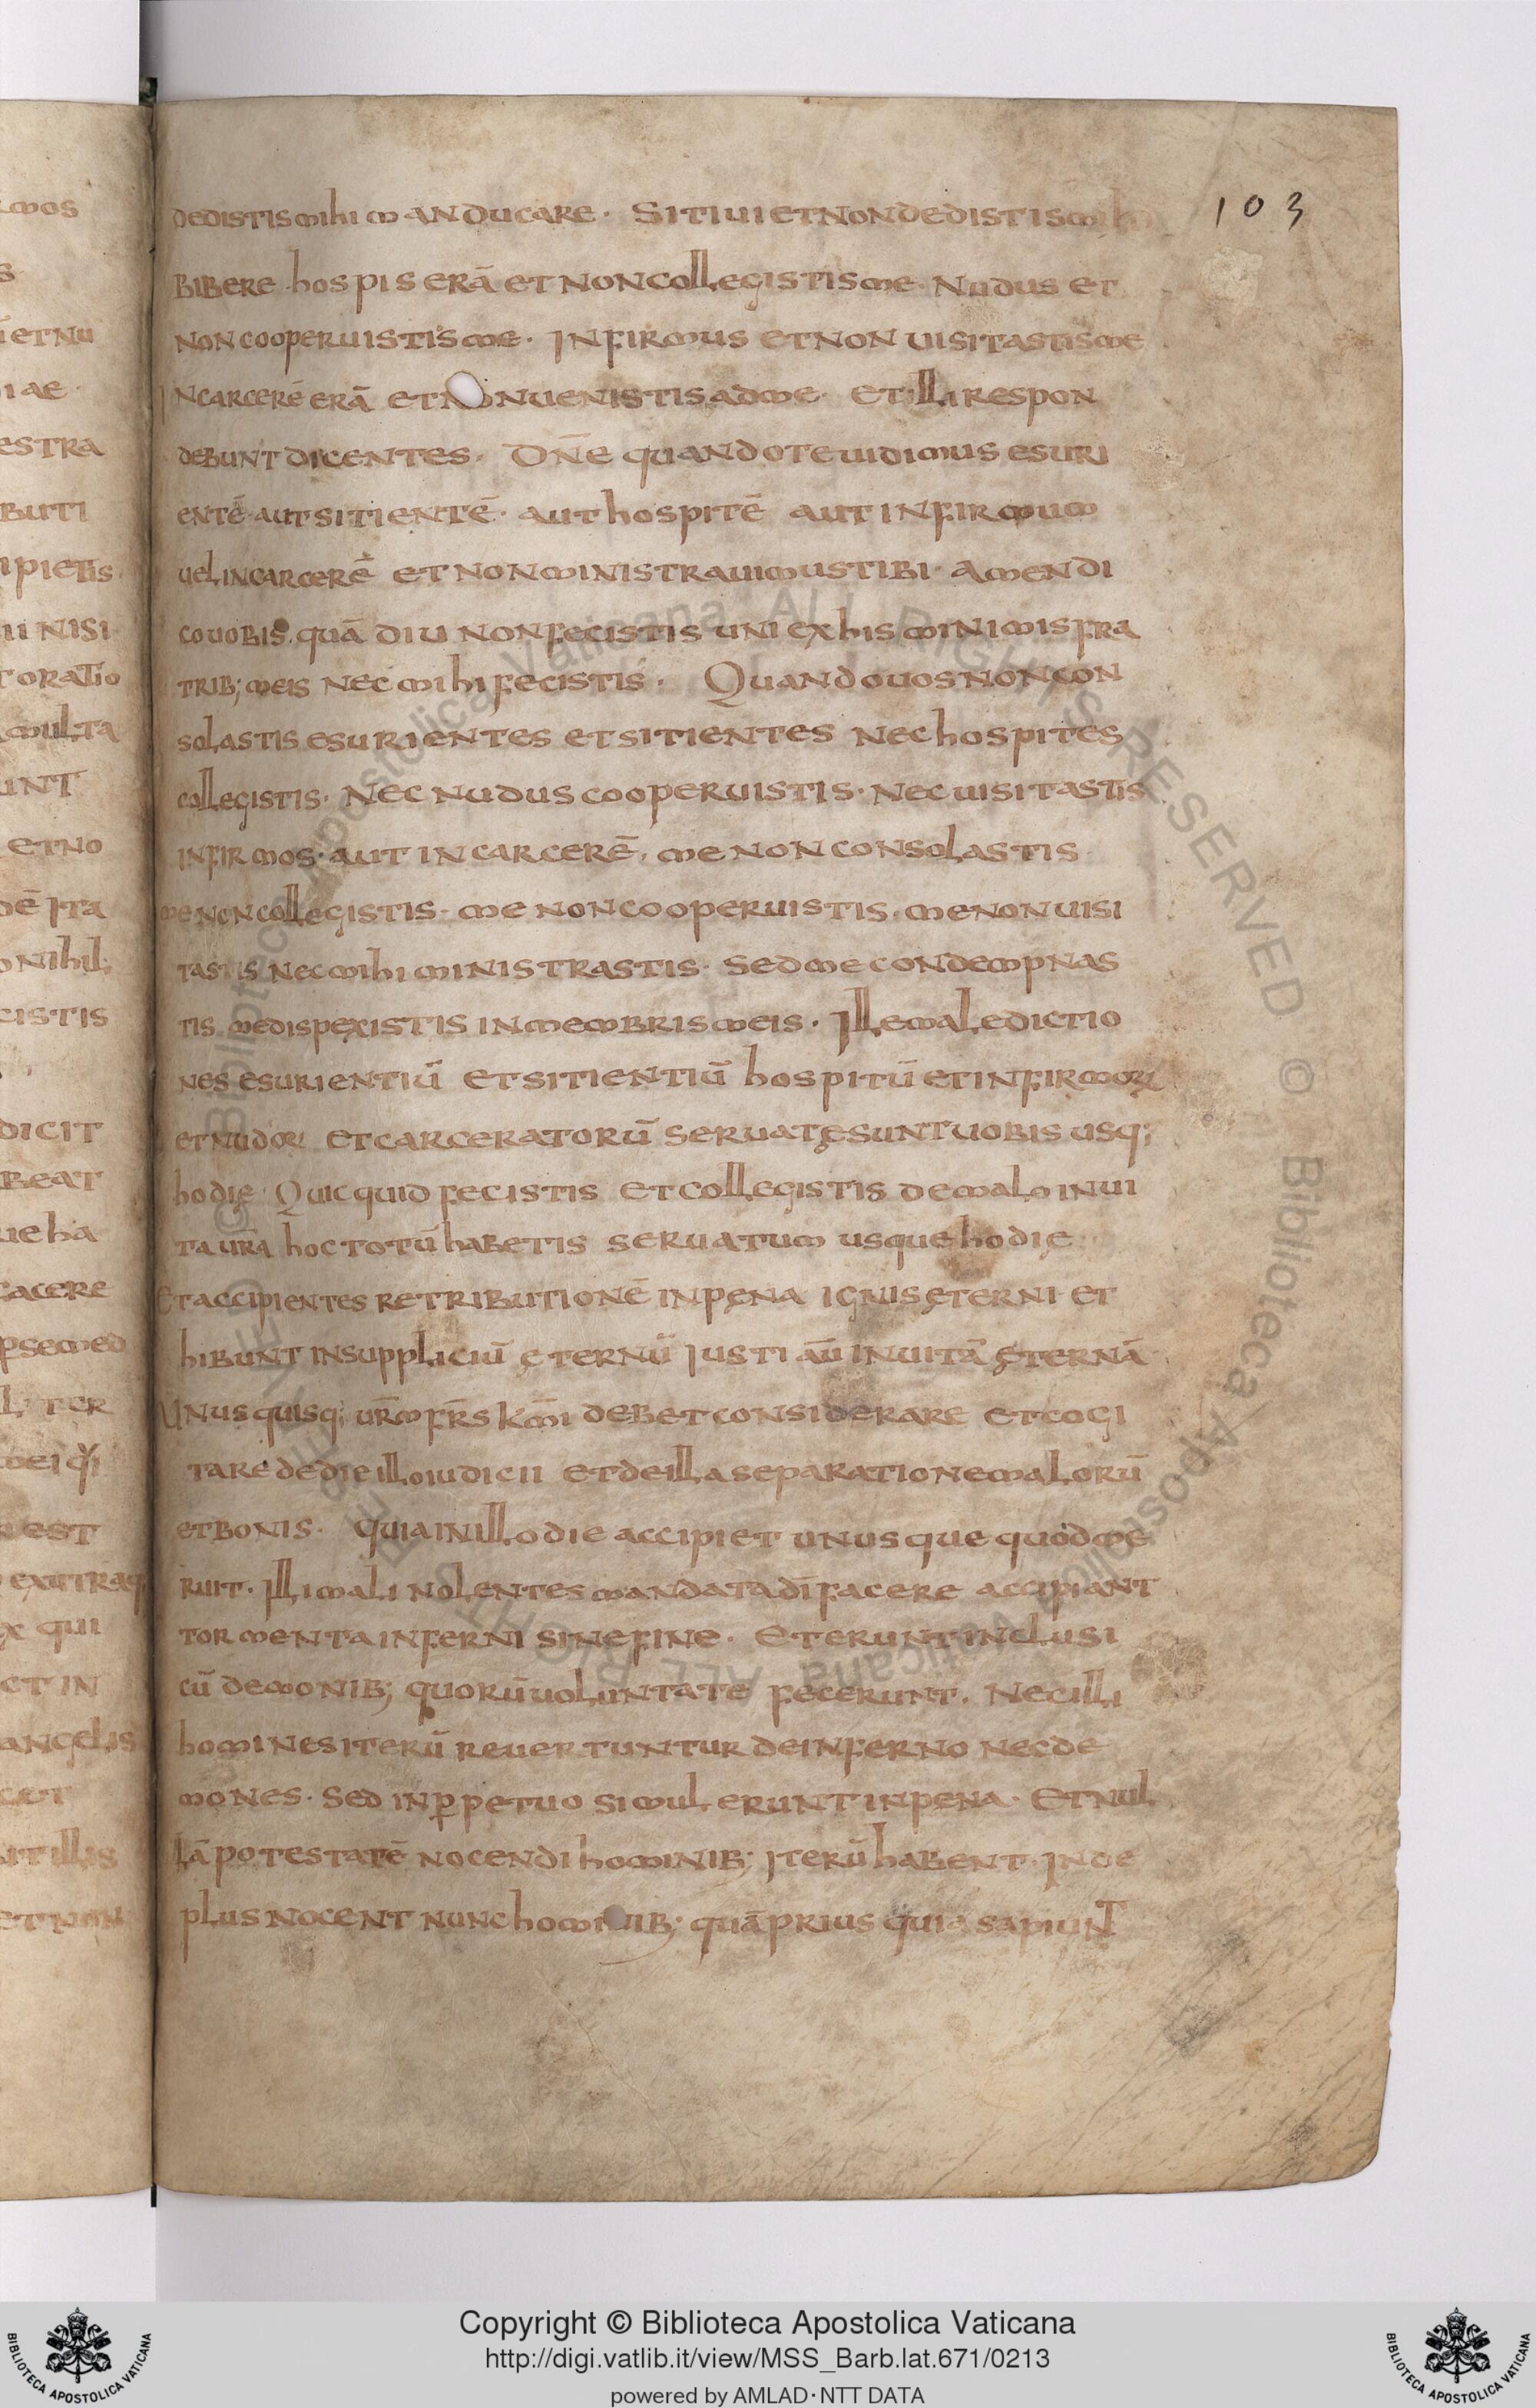 103
dedistis mihi manducare. Sitiui et non dedistis mihi
bibere. hospis erā et non collegistis me. Nudus et
non cooperuistis me. Infirmus et non uisitastis me
In carcerē erā et non uenistis ad me. Et illi respon
debunt dicentes. Dn̄e quando te uidimus esuri
entē. aut sitientē. aut hospitē aut infirmum
uel in carcerē et non ministrauimus tibi. Amen di
co uobis. quā diu non fecistis uni ex his minimis fra
trib; meis nec mihi fecistis. Quando uos non con
solastis esurientes et sitientes nec hospites
collegistis. Nec nudus cooperuistis. Nec uisitastis
infirmos. aut in carcerē. me non consolastis.
me non collegistis. me non cooperuistis. me non uisi
tastis nec mihi ministrastis. Sed me condempnas
tis. me dispexistis in membris meis. Ille maledictio
nes esurientiū et sitientiū hospitū et infirmoꝝ
et nudoꝝ et carceratorū seruatę sunt uobis usq;
hodię. Quicquid fecistis et collegistis de malo in ui
ta ur̄a hoc totū habetis seruatum usque hodię
Et accipientes retributionē in pęna ignis ęterni. et
hibunt in suppliciū ęternū iusti aū in uitā ęternā
Unusquisq; ur̄m fr̄s km̄i debet considerare et cogi
tare de die illo iudicii et de illa separatione malorū
et bonis. Quia in illo die accipiet unusque quod me
ruit. Illi mali nolentes mandata dī facere accipiant
tormenta inferni sine fine. Et erunt inclusi
cū demonib; quorū uoluntate fecerunt. Nec illi
homines iterū reuertuntur de inferno nec de
mones. Sed in ꝑpetuo simul erunt in pęna. Et nul
lā potestatē nocendi hominib; iterū habent. Inde
plus nocent nunc hominib; quā prius quia sapiunt
Copyright © Biblioteca Apostolica Vaticana
http://digi.vatlib.it/view/MSS_Barb.lat.671/0213
powered by AMLAD·NTT DATA